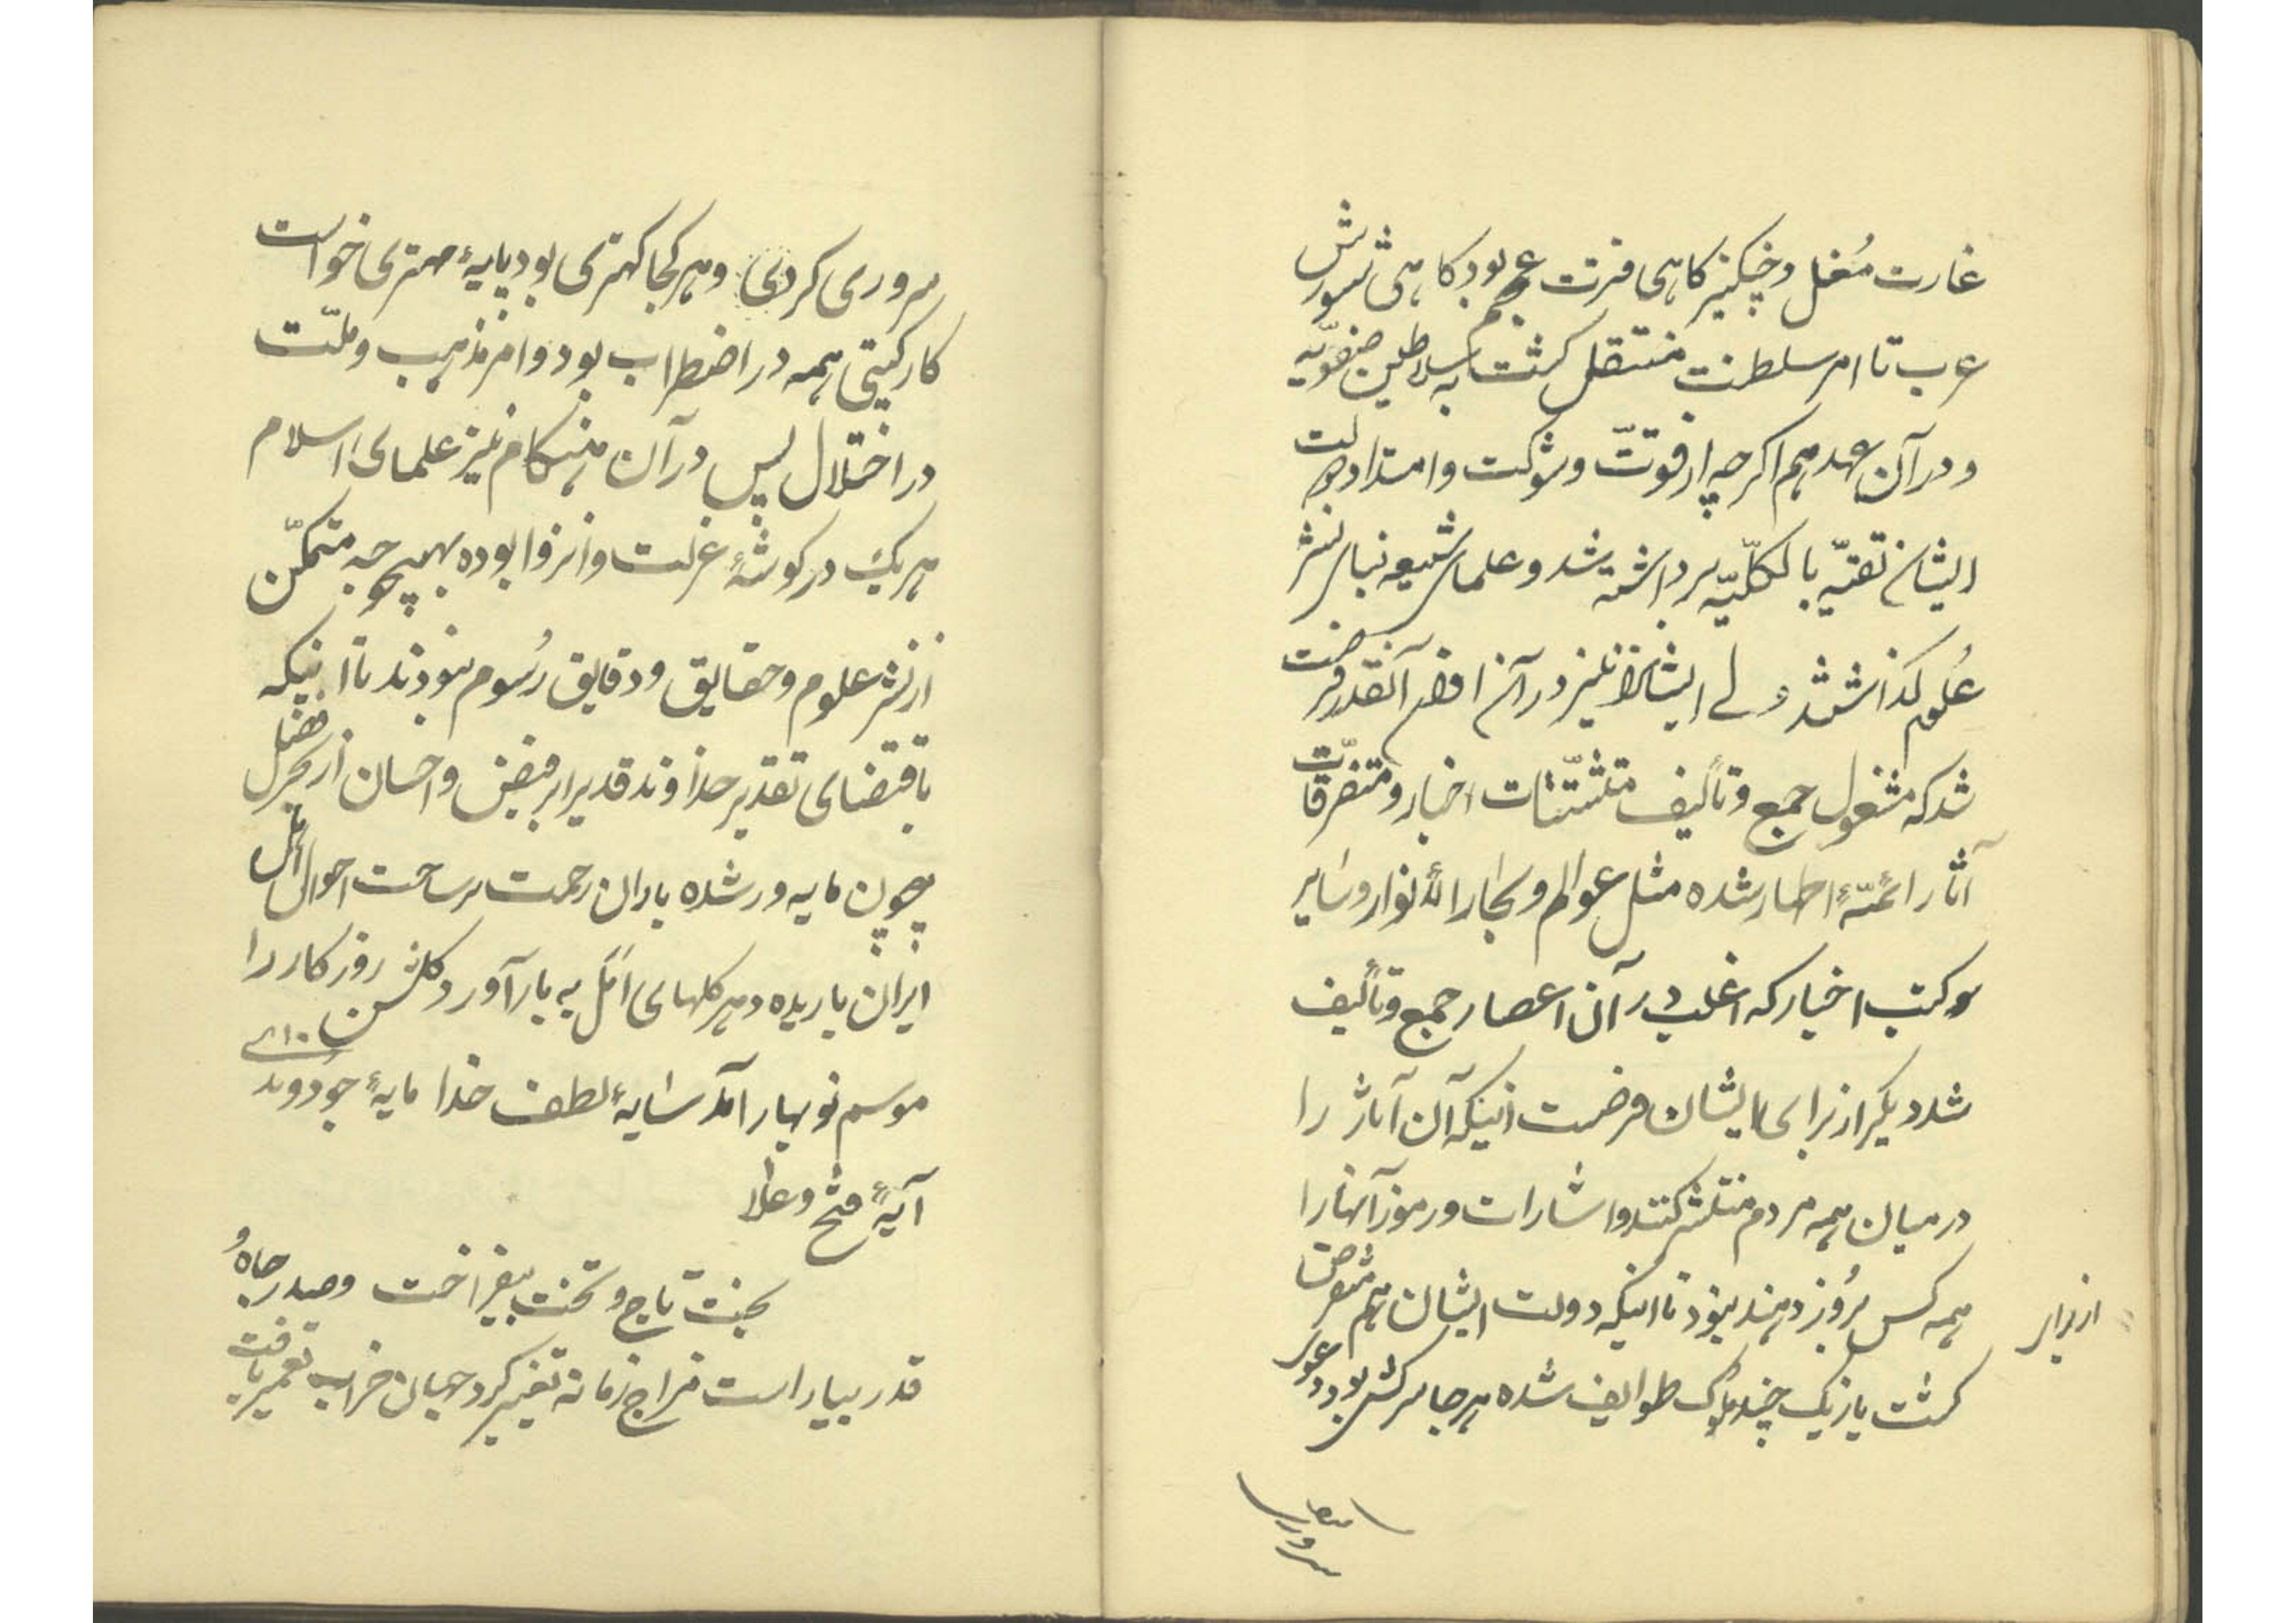 غارت مُغل و چنگیز کاهی فترت عجم بود کاهی شورش
عرب تا امر سلطنت منتقل کشت به سلاطین صفویّه
و در آن عهد هم اکرچه از قوّت و شوکت و امتداد دولت
ایشان تقیّه بالکلّیّه برداشته شد و علمای شیعه بنای نشر
علوم کذاشتند ولے ایشانرا نیز در آن اوان آنقدر فرصت
شد که مشغول جمع و تألیف متشتّتات اخبار و متفرّقات
آثار ائمّهٔ اطهار شده مثل عوالم و بحار الأنوار و سایر
کتب اخبار که اغلب در آن اعصار جمع و تألیف
شد دیکر از برای ایشان فرصت اینکه آن آثار را
در میان همه مردم منتشر کنند و اشارات و رموز آنها را
همه کس بروز دهند نبود تا اینکه دولت ایشان هم منقرض
از برای
کشت باز یک چند ملوک طوایف شده هر جا سرکشی بود دعوی
سروری
سروری کردی و هر کجا کهتری بود پایهٔ مهتری خواست
کار کیتی همه در اضطراب بود و امر مذهب و ملّت
در اختلال پس در آن هنکام نیز علمای اسلام
هر یک در کوشهٔ عزلت و انزوا بوده بهیچوجه متمکّن
از نشر علوم و حقایق و دقایق رسوم نبودند تا اینکه
باقتضای تقدیر خداوند قدیر ابر فیض و احسان از بحر فضل
چون مایه ور شده باران رحمت بر ساحت احوال اهل
ایران باریده دهر کلهای امل به بار آورد و کلشن روزکار را
موسم نوبهار آمد سایهٔ لطف خدا مایهٔ جود و ندی
آیهٔ فتح و علا
بخت تاج و تخت بیفراخت و صدر جاه و
قدر بیاراست مزاج زمانه تغییر کرد جهان خراب تعمیر یافت